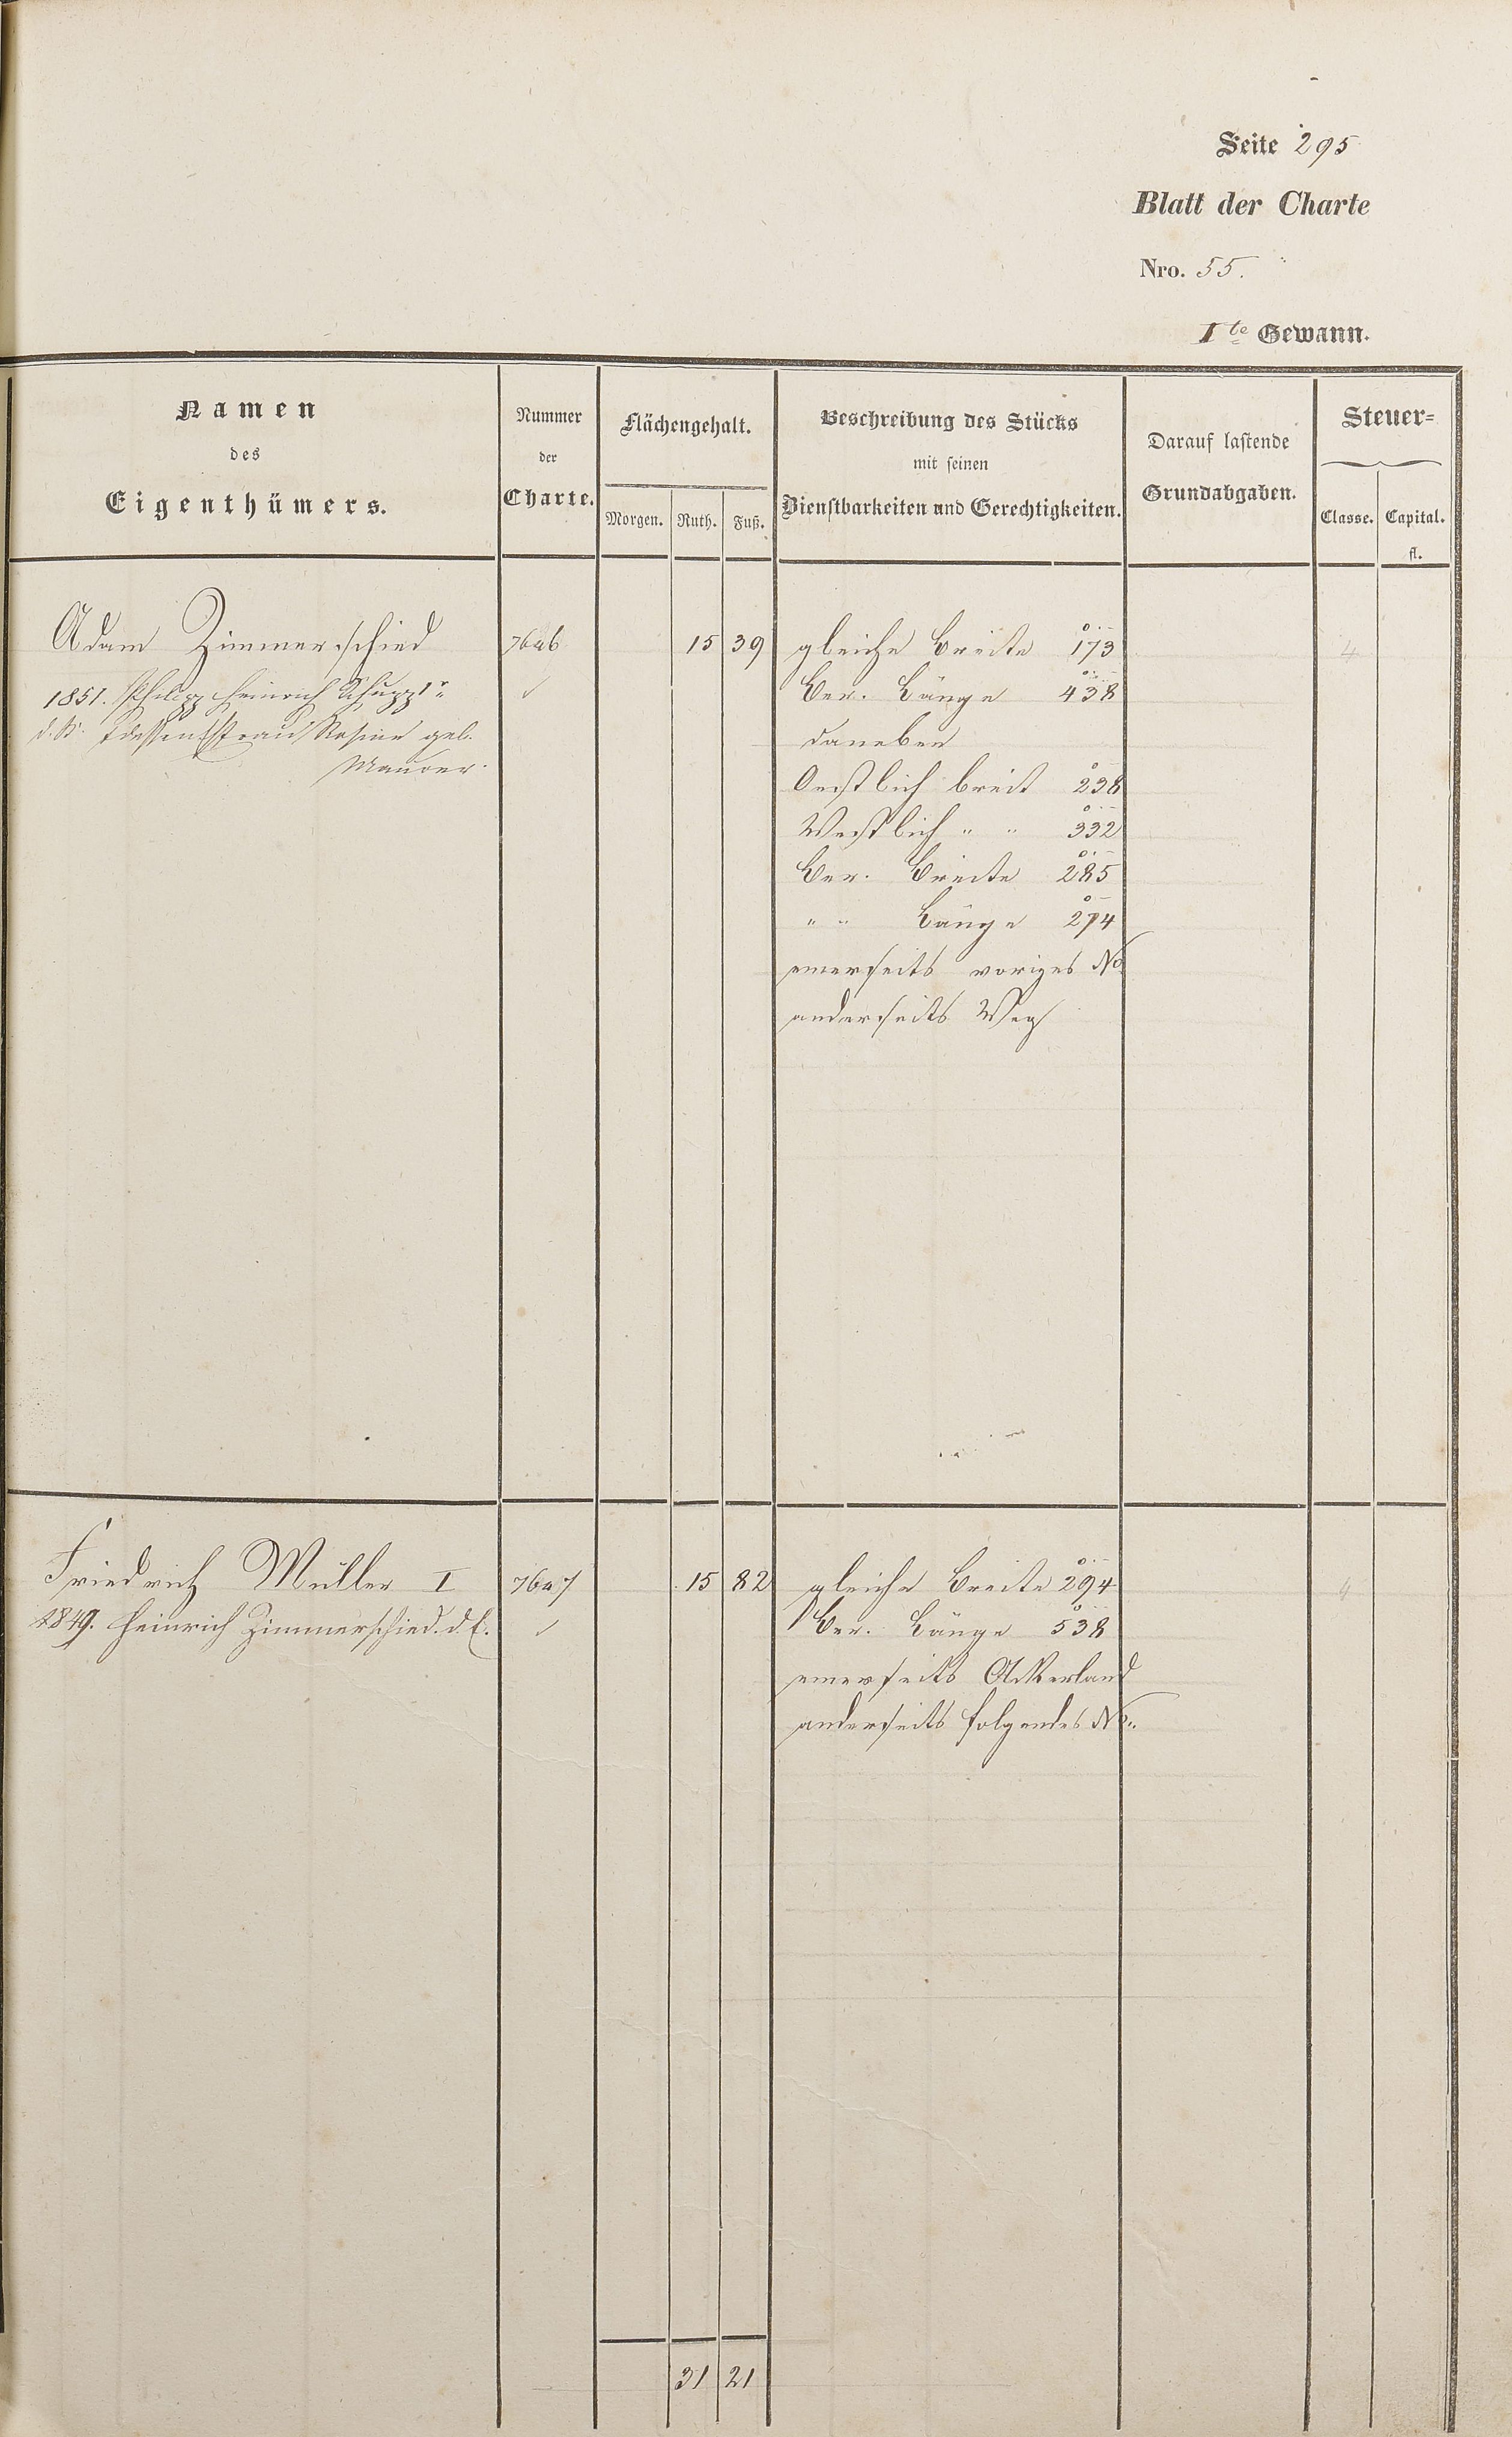 Seite 295
Blatt der Charte
Nro. 55.
Ite Gewann.
Namen
des
Eigenthümers.
Nummer
der
Charte.
Flächengehalt.
Morgen. Ruth. Fuß.
Beschreibung des Stücks
mit seinen
Dienstbarkeiten und Gerechtigkeiten.
Darauf lastende
Grundabgaben.
Steuer-
Classe. Capital.
fl.
Adam Zimmerschied 15 39 gleiche Breite 173 4
1851. Philipp Heinrich Schupp Ir Ber. Länge 438
Rosine geb. daneben
Maurer
Oestlich breit 238
Westlich " " 332
Ber. Breite 285
" " Länge 274
einerseits voriges No
anderseits Weg
Friedrich Müller I 15 82 gleiche Breite 294 4
1849. Heinrich Zimmerschied. d. E. Ber. Länge 538
einerseits Ackerland
anderseits folgendes No.
31 21